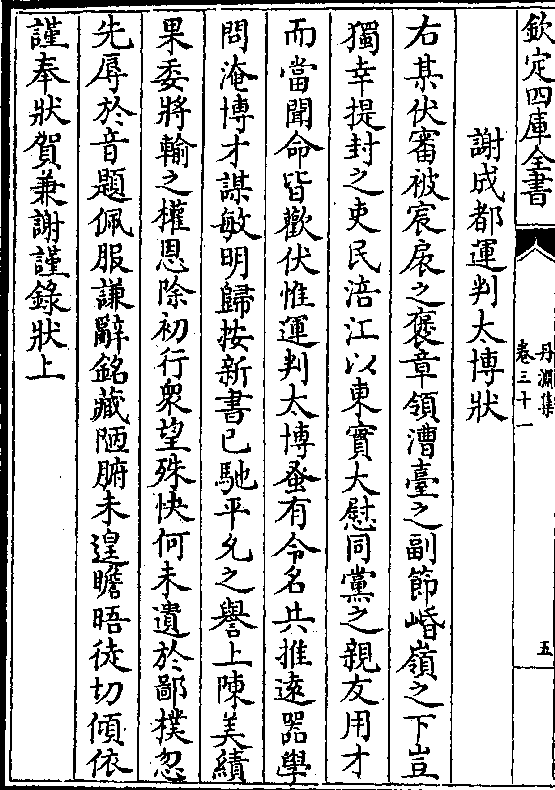 欽定四庫全書
丹淵集
卷三十一
五
謝成都運判太博狀
右某伏審被宸扆之褒章領漕臺之副節㟭嶺之下豈
獨幸提封之吏民涪江以東實大慰同黨之親友用才
而當聞命皆歡伏惟運判太博蚤有令名共推遠器學
問淹博才謀敏明歸按新書已馳平允之譽上陳美績
果委將輸之權恩除初行衆望殊快何未遺於鄙樸忽
先辱於音題佩服謙辭銘藏陋腑未遑瞻晤徒切傾依
謹奉狀賀兼謝謹錄狀上